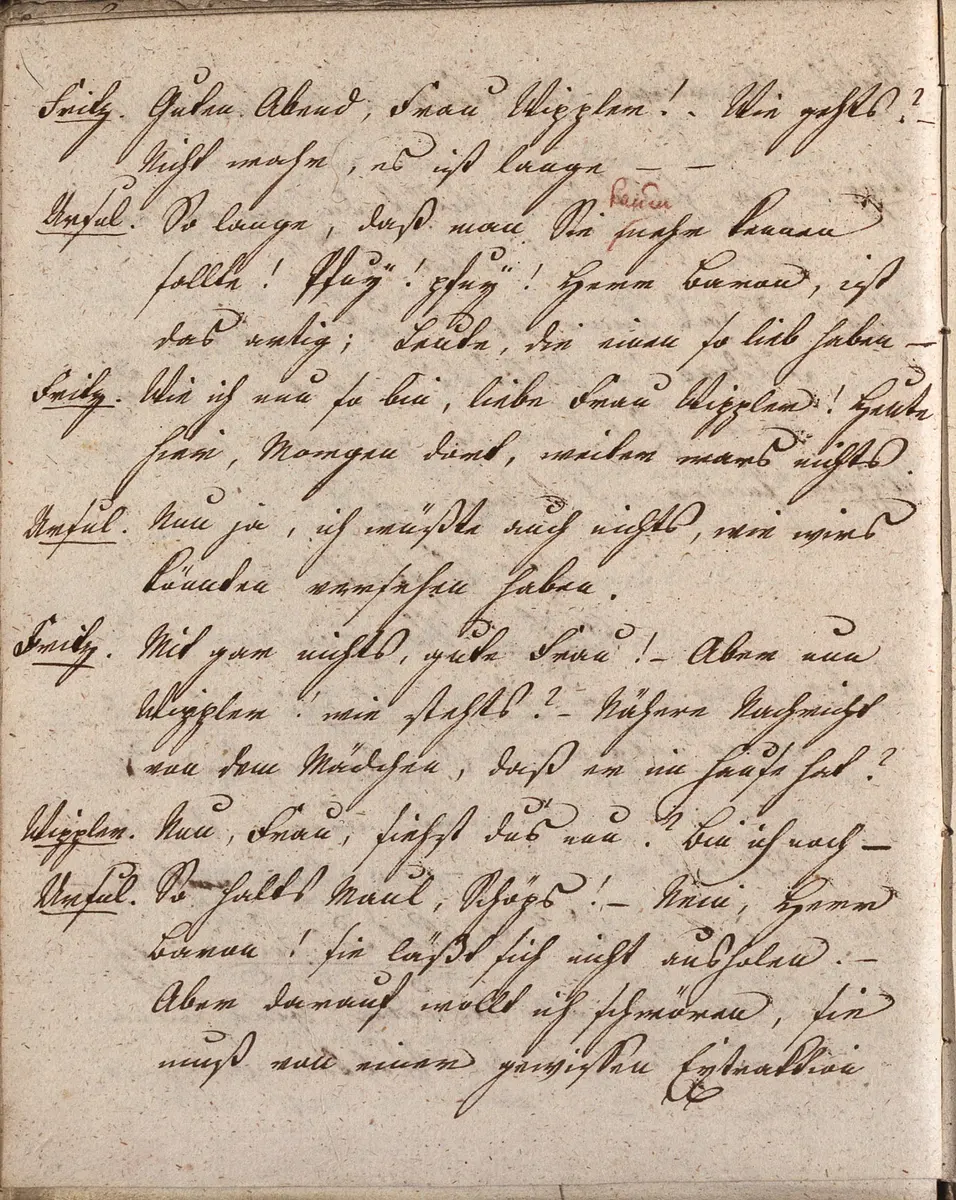 Fritz. Guten Abend, Frau Wippler! . Wie gehts? –
Nicht wahr, es ist lange – –
kaum
Ursul. So lange, daß man Sie mehr kennen
sollte! Pfuÿ! pfuÿ! Herr Baron, ist
das artig; Leute, die einen so lieb haben –
Fritz. Wie ich nun so bin, liebe Frau Wippler! Heute
hier, Morgen dort, weiter wars nichts.
Ursul. Nun ja, ich wüßte auch nichts, wie wirs
könnten versehen haben.
Fritz. Mit gar nichts, gute Frau! – Aber nun
Wippler! wie stehts? – Nähere Nachricht
von dem Mädchen, daß er im Hause hat?
Wippler. Nun, Frau, siehst dus nun? Bin ich noch –
Ursul. So halts Maul, Schöps! – Nein, Herr
Baron! sie läßt sich nicht ausholen. –
Aber darauf wollt ich schwören, sie
muß von einer gewissen Extraktion